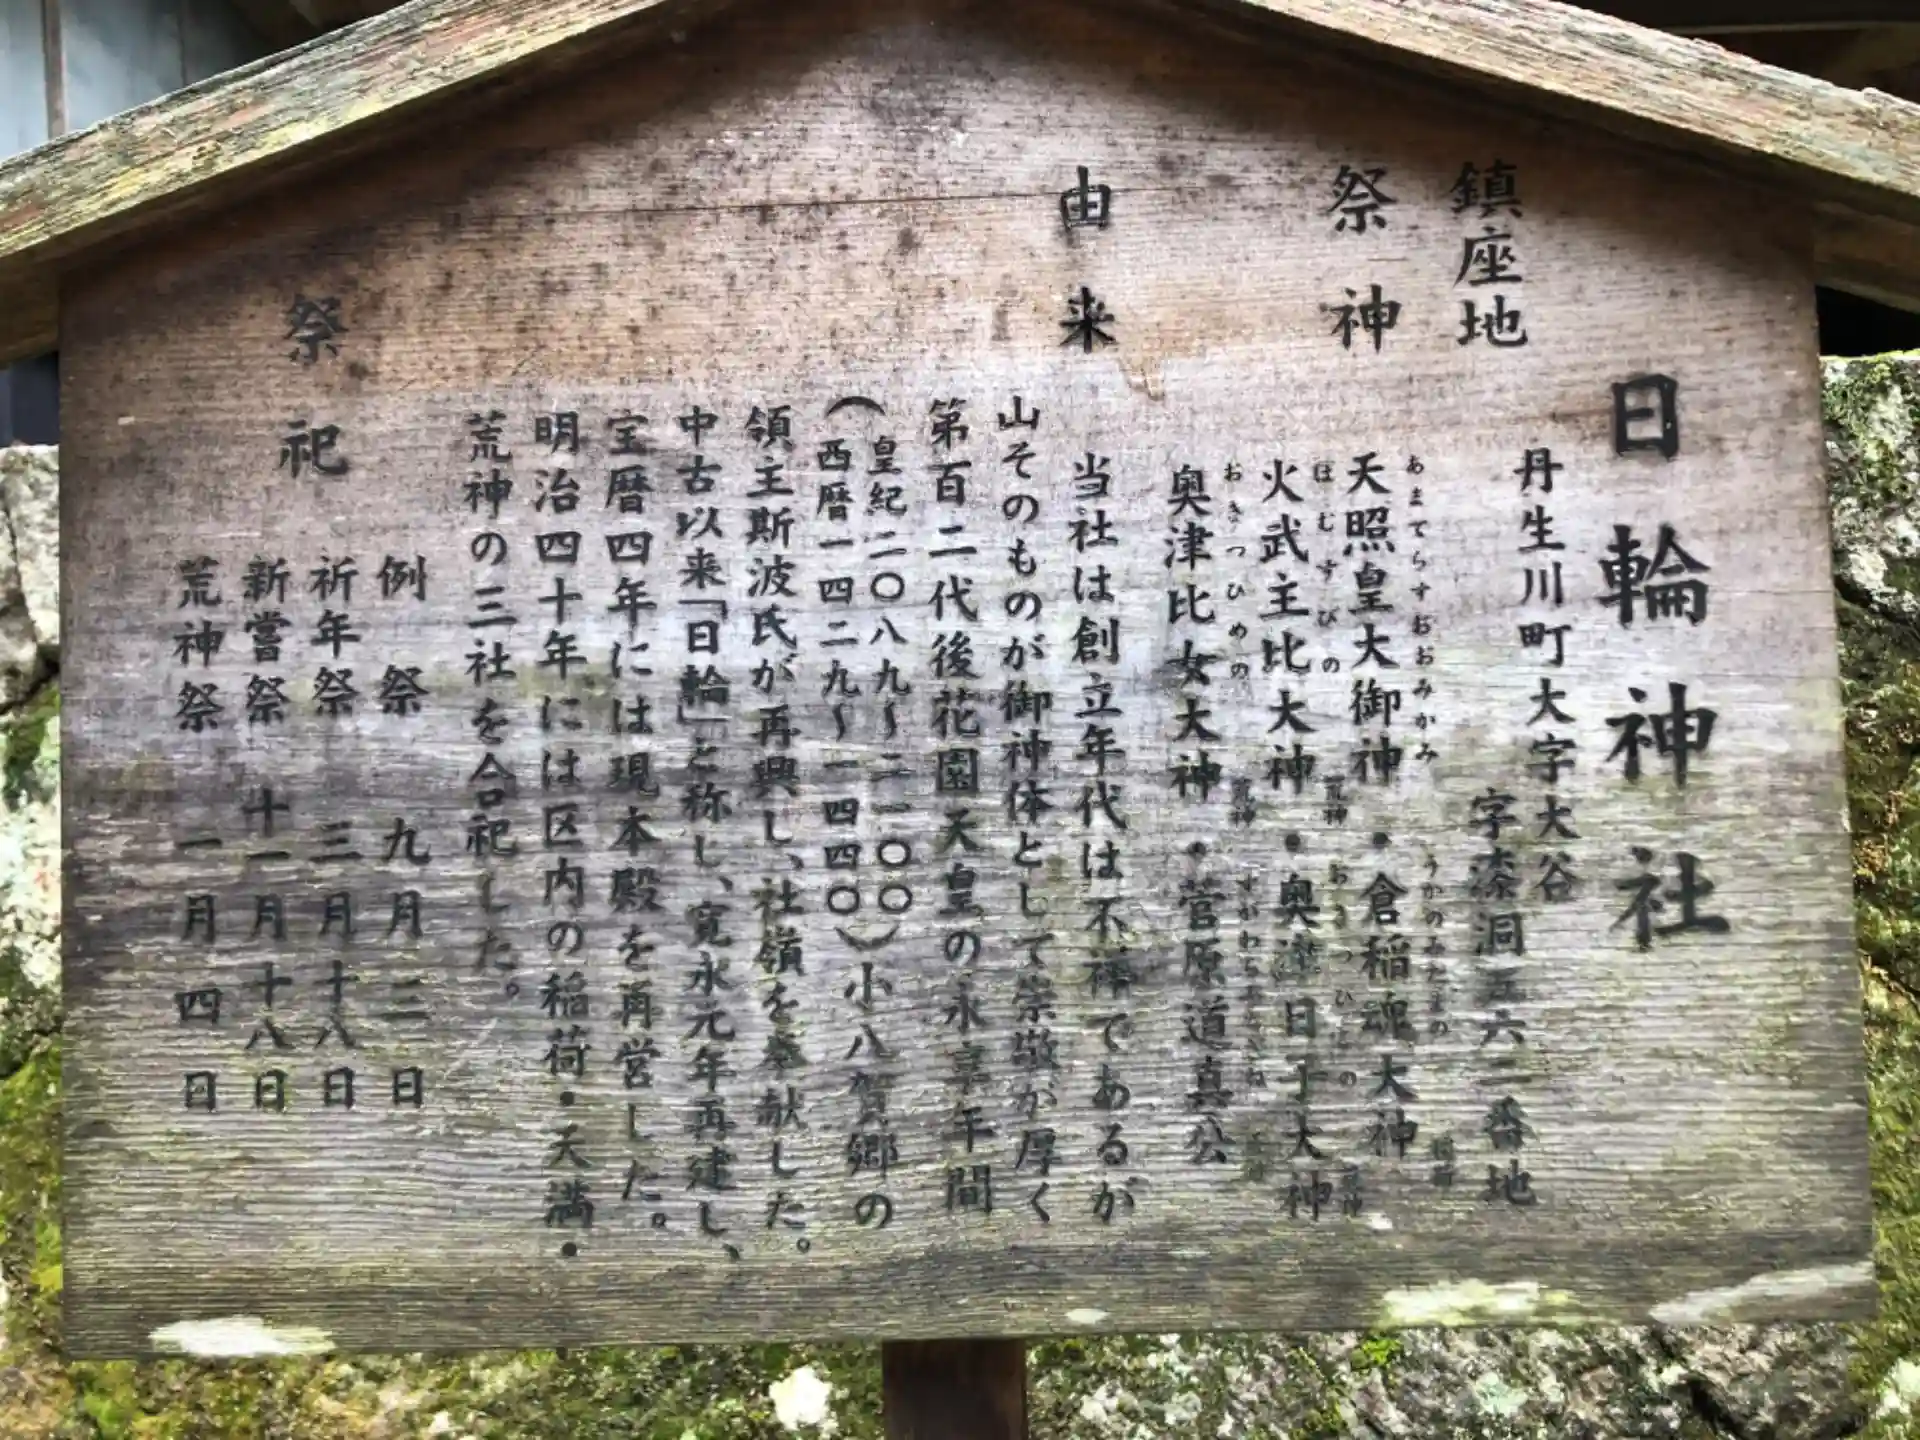 日輪神社
鎮座地
丹生川町大字大谷
字漆洞五六二番地
祭神
あまてらすおおみかみ
うかのみたまの
天照皇大御神・倉稲魂大神
稲荷
ほむすびの
おきつひこの
火武主比大神・奥津日子大神
荒神
荒神
おきつひめの
すがわらみちざね
奥津比女大神・菅原道真公
荒神
由来
当社は創立年代は不祥であるが
山そのものが御神体として崇敬が厚く
第百二代後花園天皇の永享年間
(皇紀二〇八九〜二一〇〇
西暦一四二九〜一四四〇)小八賀郷の
領主斯波氏が再興し、社嶺を奉献した。
中古以来「日輪」と称し、寛永元年再建し、
宝暦四年には現本殿を再営した。
明治四十年には区内の稲荷・天満・
荒神の三社を合祀した。
祭祀
例祭 九月三日
祈年祭 三月十八日
新嘗祭 十一月十八日
荒神祭 一月四日